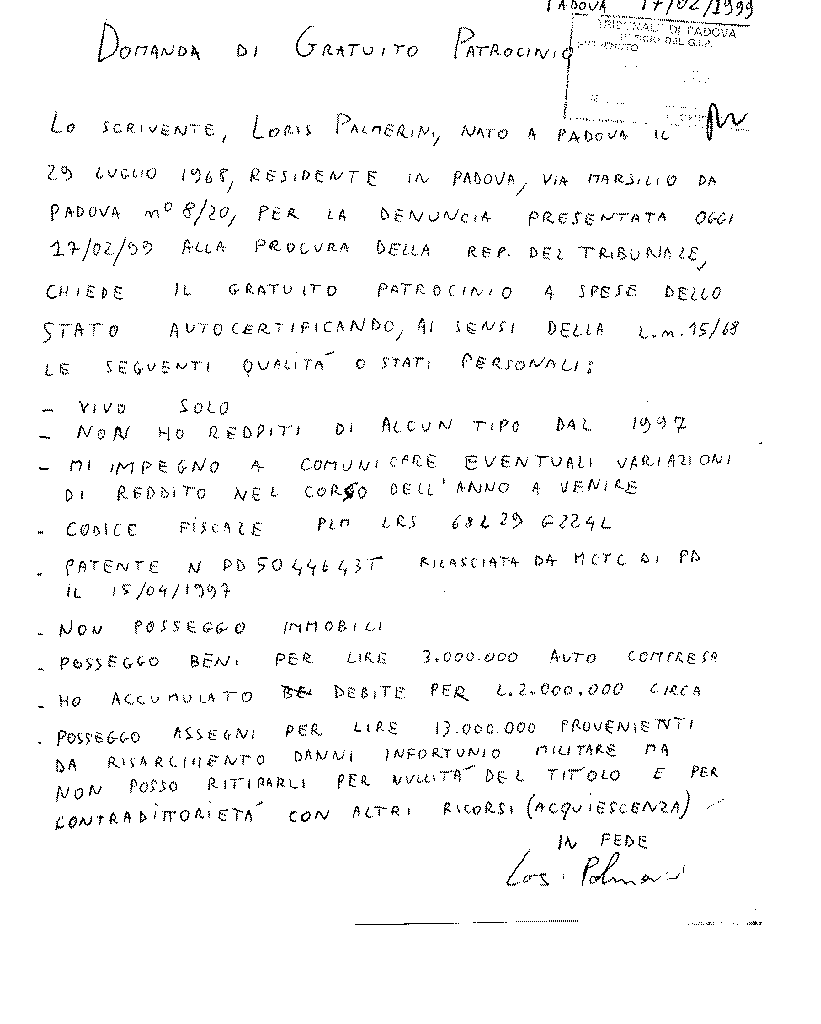 PADOVA 17/02/1999
TRIBUNALE DI PADOVA
DOMANDA DI GRATUITO PATROCINIO
LO SCRIVENTE, LORIS PALMERIN, NATO A PADOVA IL
29 LUGLIO 1968, RESIDENTE IN PADOVA, VIA MARSILIO DA
PADOVA nº 8/20, PER LA DENUNCIA PRESENTATA OGGI
17/02/99 ALLA PROCURA DELLA REP. DEL TRIBUNALE,
CHIEDE IL GRATUITO PATROCINIO A SPESE DELLO
STATO AUTOCERTIFICANDO, AI SENSI DELLA L.n.15/68
LE SEGUENTI QUALITA' O STATI PERSONALI:
- VIVO SOLO
- NON HO REDDITI DI ALCUN TIPO DAL 1997
- MI IMPEGNO A COMUNICARE EVENTUALI VARIAZIONI
DI REDDITO NEL CORSO DELL'ANNO A VENIRE
- CODICE FISCALE PLM LRS 68L29 G224L
- PATENTE N PD5044643T RILASCIATA DA MCTC DI PD
IL 15/04/1997
- NON POSSEGGO IMMOBILI
- POSSEGGO BENI PER LIRE 3.000.000 AUTO COMPRESA
- HO ACCUMULATO DEBITE PER L.2.000.000 CIRCA
- POSSEGGO ASSEGNI PER LIRE 13.000.000 PROVENIENTI
DA RISARCIMENTO DANNI INFORTUNIO MILITARE MA
NON POSSO RITIRARLI PER NULLITA' DEL TITOLO E PER
CONTRADITTORIETA' CON ALTRI RICORSI (ACQUIESCENZA)
IN FEDE